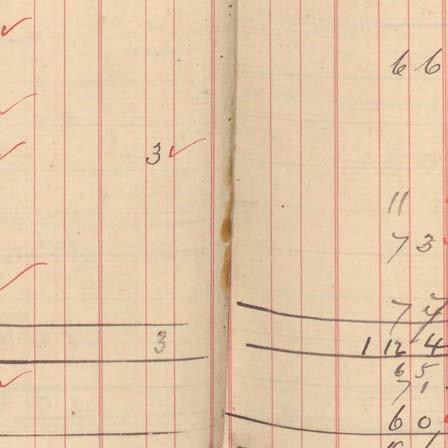 3
3
6 6
11
7 3
7 4
1 12 4
6 5
7 1
6 0